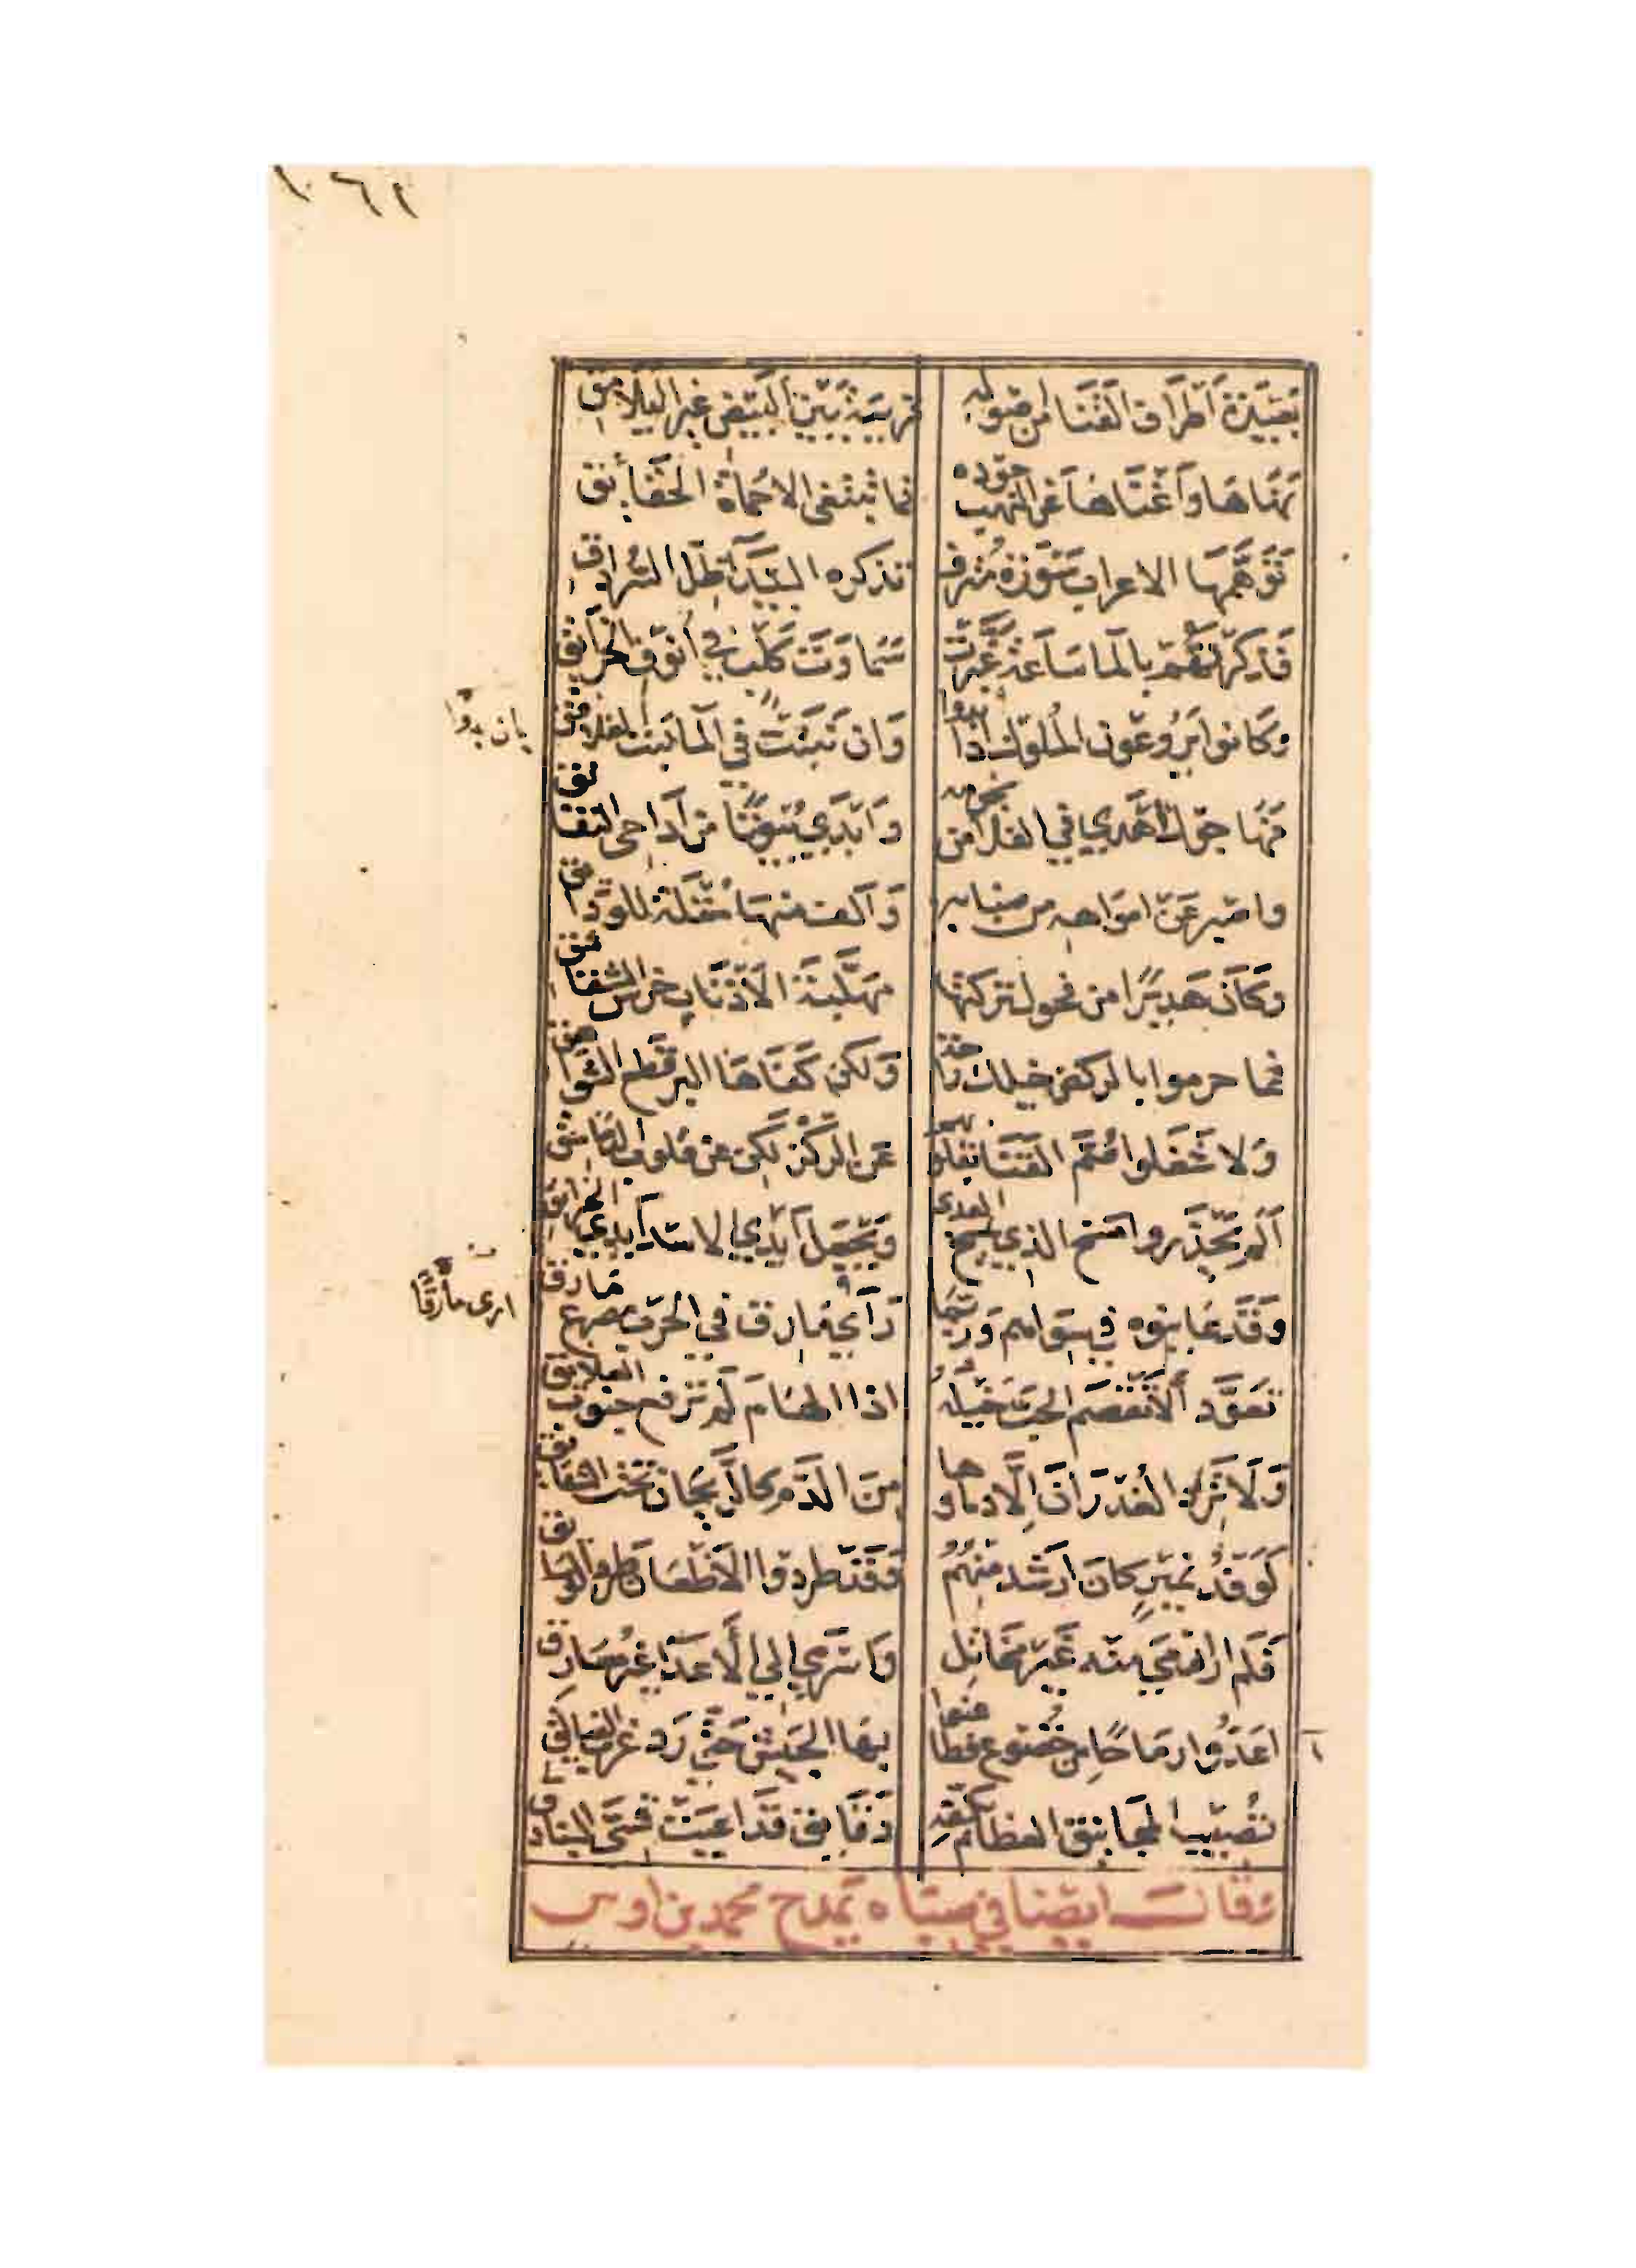 بعيدة اطراف القنا من اصوله قريبة بين البيض غير اليلامق
نهاها واغناها عن النهب جوده فما تبتغي الا حماة الحقائق
توهمها الاعراب سورة مترف تذكره البيدآ ظل السرادق
فذكرتهم بالما ساعة غبرت سماوت كلب في انوف الحزائق
وكانوا يروعون الملوك اذا بدوا وان نبتت في المآ نبت الغلافق
بان بدوا
اهدي في الفلا من نجومه وابدي بيوتا من اداحى النقانق
واصبر عن امواهه من ضبابه وآلف منها مقلة للودائق
وكان هديرًا من فحول تركتها مهلبة الاذناب خرس الشقاشق
فما حرموا بالركض خيلك راحة ولكن كفاها البر قطع الشواهق
ولا شغلوا صم القنا بقلوبهم عن الركز لكن عن قلوب الدماسق
الم يحذروا مسخ الذي يمسخ العدى وتجعل ايدي الاسد ايدي الخرانق
وقد عاينوه في سواهم وربما رآي مارق في الحرب مصرع مارق
ارى مارقًا
تعود الا تقضم الحب خيله اذا الهام لم ترفع جنوب العلايق
ولا ترد الغدران الا وماوها من الدم كالريحان تحت الشقايق
لوفد نمير كان ارشد منهم وقد طردوا الاظعان طرد الوسايق
فلم ار ارمي منه غير مخاتل واسري الي الاعدا غير مسارق
اعدوا رماحًا من خضوع فطاعنوا بها الجيش حتي رد غرب الفيالق
تصيب المجانيق العظام بكفه دقايق قد اعيت قسي البنادق
وقال ايضا في صباه يمدح محمد بن اوس